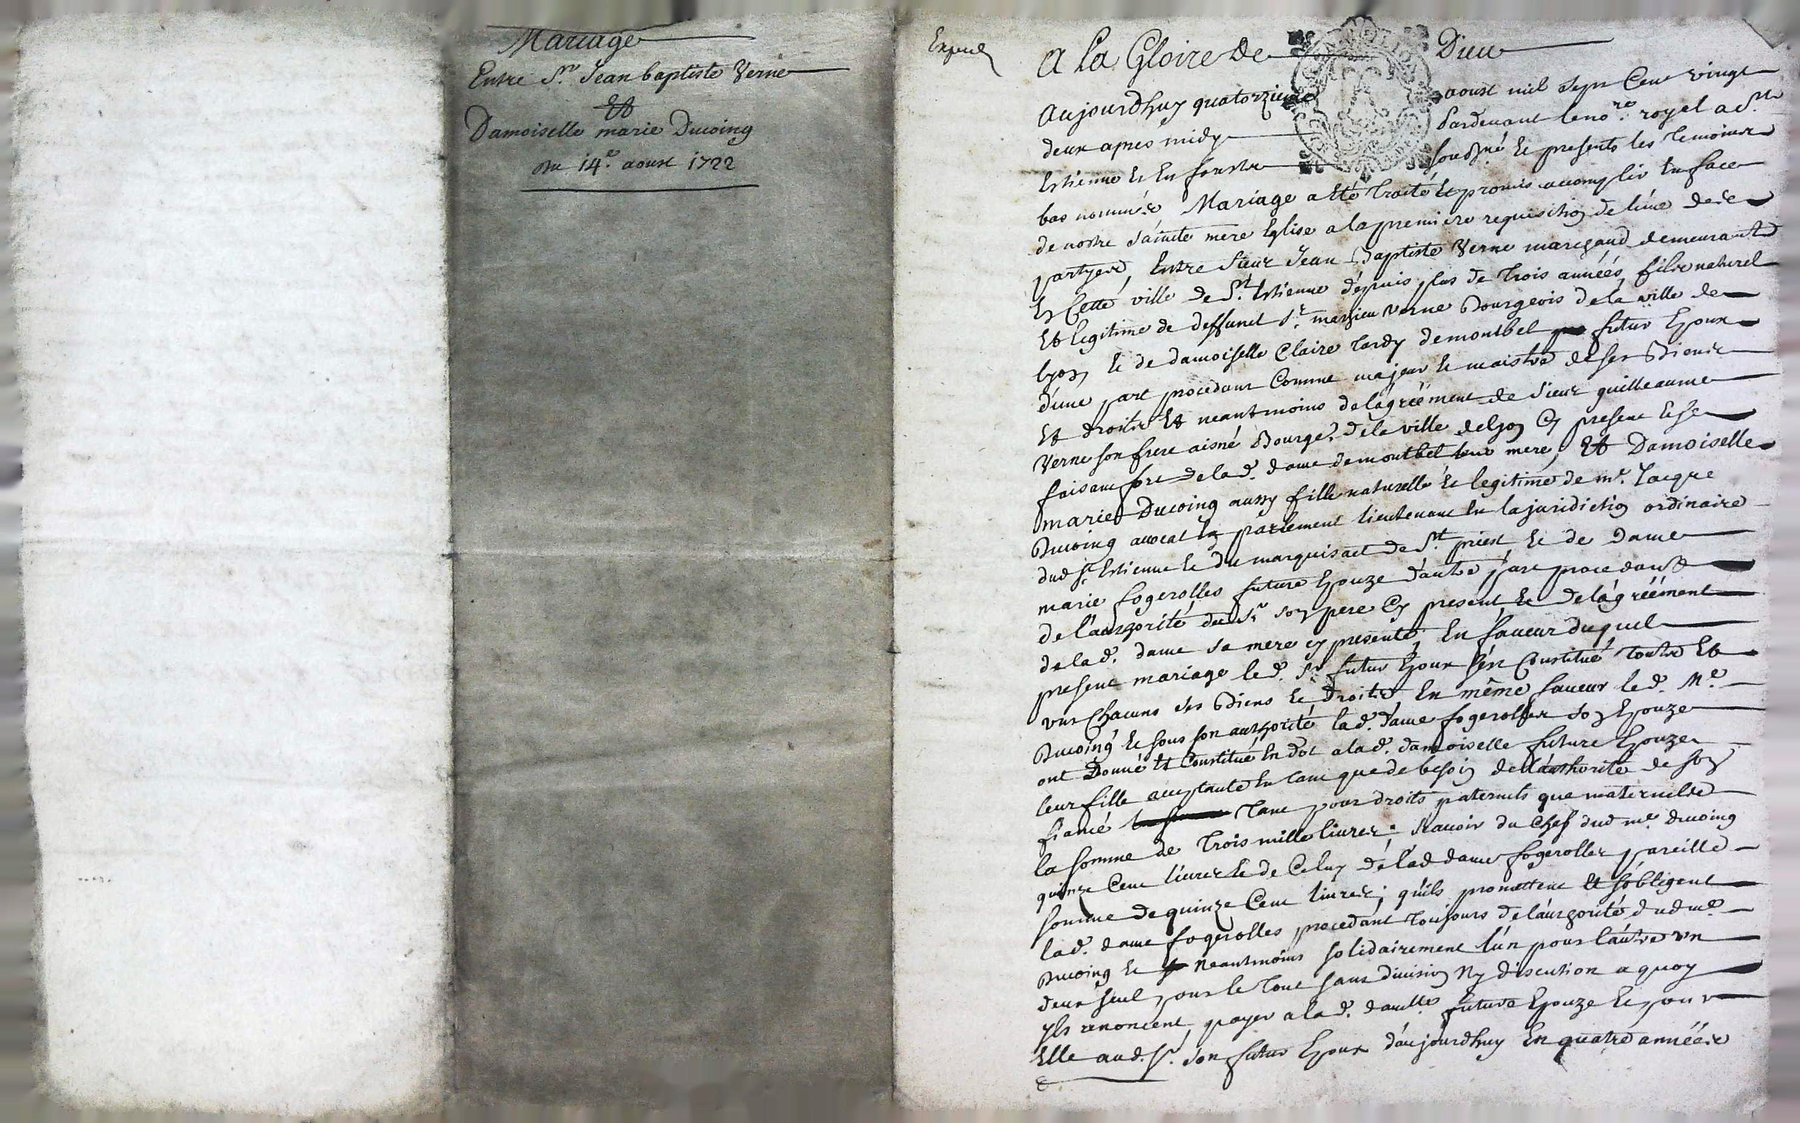 Mariage
Entre Sr Jean baptiste Verne
Et
Damoiselle marie Ducoing
Du 14e aoust 1722
A La Gloire de Dieu
Aujourdhuy quatorzieme aoust mil sept Cent vingt
deux apres midy Pardevant le nore royal a St
Estienne Et En forestz soussné Et presents les Temoins
bas nommés Mariage a Eté Traité Et promis accomplir En face
de nostre sainte mere Eglise a la premiere requisition de l'une des
partyes, Entre sieur Jean Baptiste Verne marchand demeurant
En Cette ville de St Estienne depuis plus de trois années, fils naturel
Et legitime de deffunct Sr mathieu Verne Bourgeois de la ville de
lyon, Et de damoiselle Claire Tardy demontbel futur Epoux
d'une part procedant Comme majeur Et maistre de ses Biens
Et droits Et neantmoins de lagréement de sieur guilleaume
Verne son frere aisné Bourgs de la ville de lyon Cy present Et se
faisant fort de lad. dame demontbel leur mere, Et Damoiselle
marie Ducoing aussy fille naturelle Et legitime de mr. Jacque
Ducoing avocat En parlement lieutenant En la juridiction ordinaire
dud St Estienne Et du marquisact de St priest Et de Dame
marie fogerolles future Epouze d'autre part procedant
de l'authorité dud Sr son pere Cy present Et de lagréément
de lad. dame sa mere cy presente, En faveur duquel
present mariage led. Sr futur Epoux s'Est Constitué touts Et
uns Chacuns ses Biens Et Droits En même faveur led. Me
Ducoing Et sous son authorité lad. dame fogerolles son Epouze
ont Donné Et Constitué En dot a lad. damoiselle future Epouze
leur fille acceptante En tant que de besoin de l'authorité de son
fiancé Tant pour droits paternels que maternels
la somme de Trois mille livres: scavoir du Chef dud me. Ducoing
quinze Cent livres Et de Celuy de lad dame fogerolles pareille
somme de quinze Cent livres; qu'ils promettent Et s'obligent
lad. dame fogerolles procedant toujours de l'authorité dud me.
Ducoing Et neantmoins solidairement l'un pour l'autre un
deux seul pour le Tout sans division Ny discution a quoy
Ils renoncent, payer a lad. damlle future Epouze Et pour
Elle aud. Sr. son futur Epoux d'aujourdhuy En quatre années